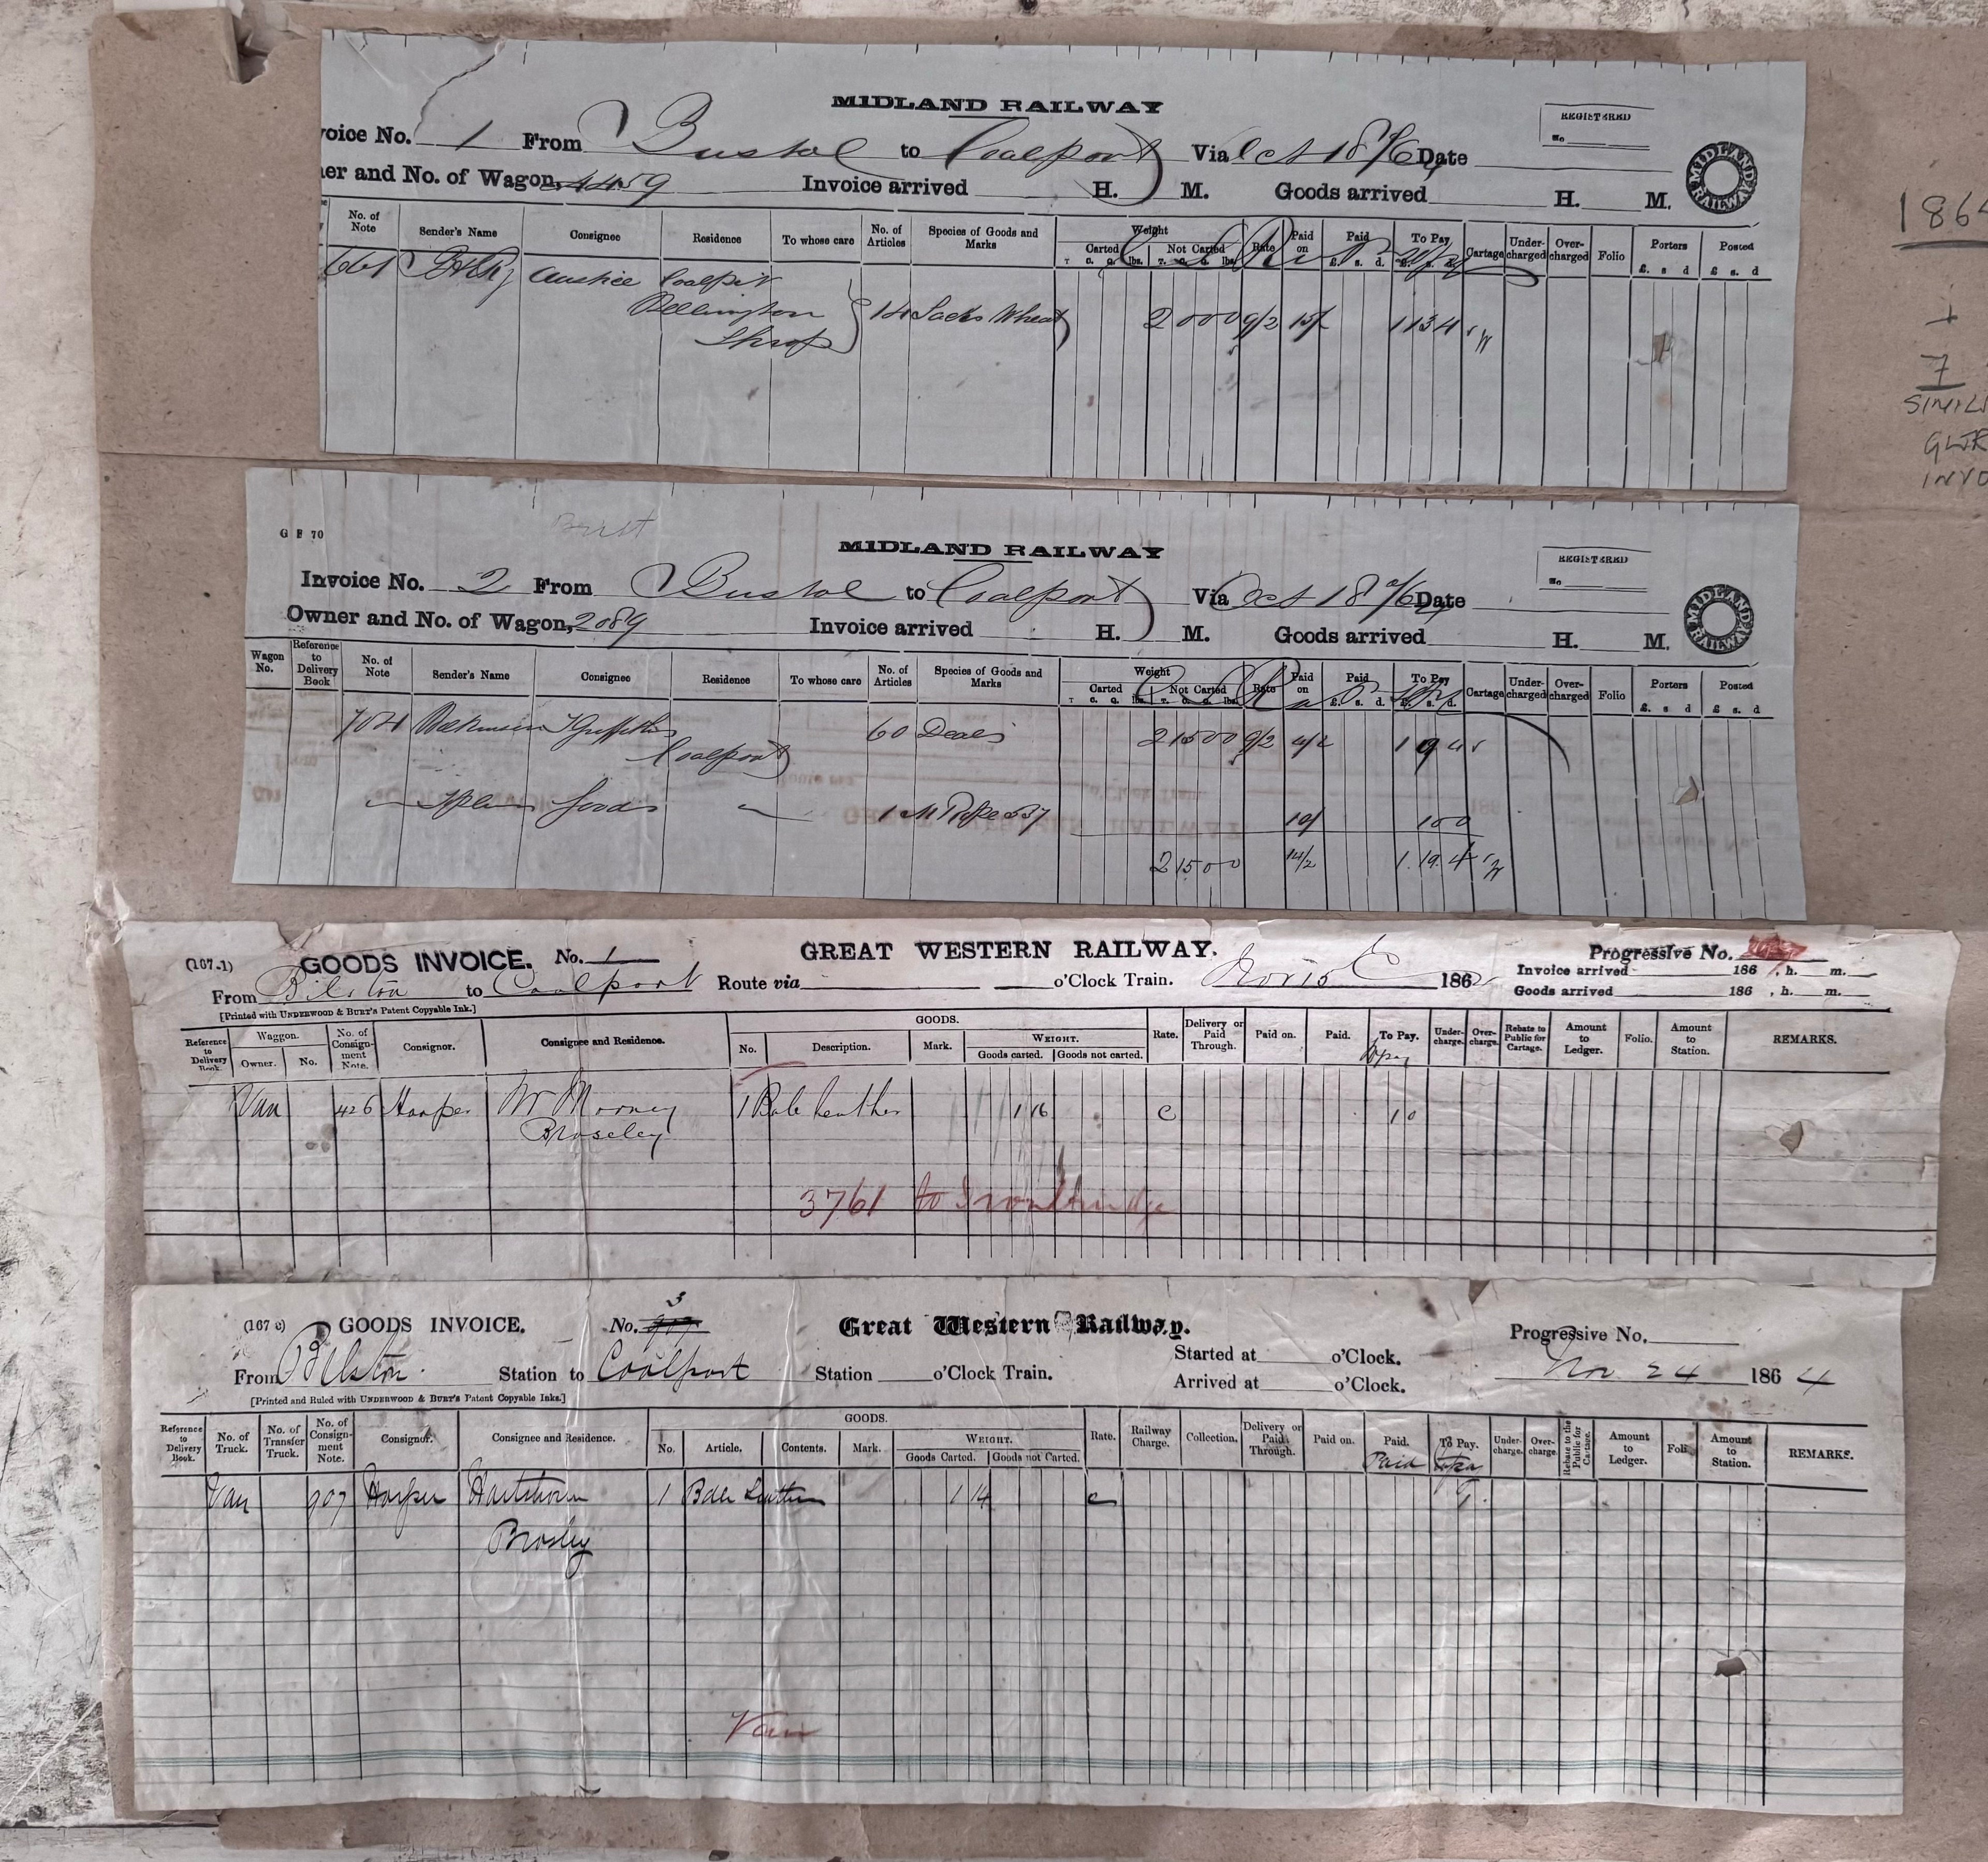 MIDLAND RAILWAY
REGISTERED
No.
voice No. 1 From Bristol to Coalport Via Oct 18 / 64 Date
MIDLAND RAILWAY
ner and No. of Wagon, 4459 Invoice arrived H. M. Goods arrived H. M.
No. of Note Sender's Name Consignee Residence To whose care No. of Articles Species of Goods and Marks Weight Carted T. c. q. lbs. Not Carted T. c. q. lbs. Rate Paid on Paid £. s. d. To Pay £. s. d. Cartage Under-charged Over-charged Folio Porters £. s d Posted £. s. d
661 Anstice Coalport
Wellington 14 Sacks Wheat 2 0 0 0 9/2 15/ 1 13 4
Shrop
1864
+
7
SIMIL
GWR
INVO
G F 70
MIDLAND RAILWAY
REGISTERED
No.
Invoice No. 2 From Bristol to Coalport Via Oct 18 / 64 Date
MIDLAND RAILWAY
Owner and No. of Wagon, 2089 Invoice arrived H. M. Goods arrived H. M.
Wagon No. Reference to Delivery Book No. of Note Sender's Name Consignee Residence To whose care No. of Articles Species of Goods and Marks Weight Carted T. c. q. lbs. Not Carted T. c. q. lbs. Rate Paid on Paid £. s. d. To Pay £. s. d. Cartage Under-charged Over-charged Folio Porters £. s d Posted £. s. d
704 Griffiths 60 Deals 2 15 0 0 9/2 4/2 1 9 4
Coalport
Goods 1 10/ 10 0
2 15 0 0 14/2 1 19 4
(167-1) GOODS INVOICE. No. 1 GREAT WESTERN RAILWAY. Progressive No.
From Bilston to Coalport Route via o'Clock Train. Nov 15 1862
Invoice arrived 186 , h. m.
Goods arrived 186 , h. m.
[Printed with UNDERWOOD & BURT'S Patent Copyable Ink.]
Reference to Delivery Book. Waggon. Owner. No. No. of Consignment Note. Consignor. Consignee and Residence. GOODS. No. Description. Mark. WEIGHT. Goods carted. Goods not carted. Rate. Delivery or Paid Through. Paid on. Paid. To Pay. Under-charge. Over-charge. Rebate to Public for Cartage. Amount to Ledger. Folio. Amount to Station. REMARKS.
Van 426 Harper Mr Mooney 1 Bale Leather 1 16 C 1 0
Broseley
3761 to Ironbridge
(167 c) GOODS INVOICE. No. 907 3 Great Western Railway. Progressive No.
From Bilston Station to Coalport Station o'Clock Train. Started at o'Clock. Nov 24 1864
Arrived at o'Clock.
[Printed and Ruled with UNDERWOOD & BURT'S Patent Copyable Inks.]
Reference to Delivery Book. No. of Truck. No. of Transfer Truck. No. of Consignment Note. Consignor. Consignee and Residence. GOODS. No. Article. Contents. Mark. WEIGHT. Goods Carted. Goods not Carted. Rate. Railway Charge. Collection. Delivery or Paid Through. Paid on. Paid. To Pay. Under-charge. Over-charge Rebate to the Public for Cartage. Amount to Ledger. Foli Amount to Station. REMARKS.
Paid
Van 907 Harper Hartshorn 1 Bale Leather 1 14 c
Brosley
Van